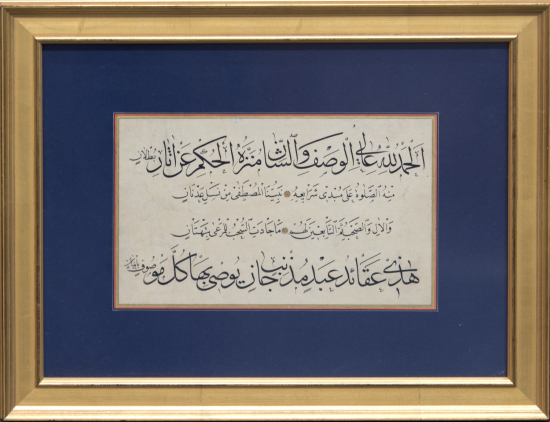 الحمد لله عالي الوصف والشان منزه الحكم عن آثار بطلان
منه الصلوة على مبدي شرايعه نبينا المصطفى من نسل عدنان
والآل والصحب ثم التابعين لهم ما جادت السحب للرعى بتهتان
هذي عقائد عبد مذنب جان يوصي بها كل موصوف